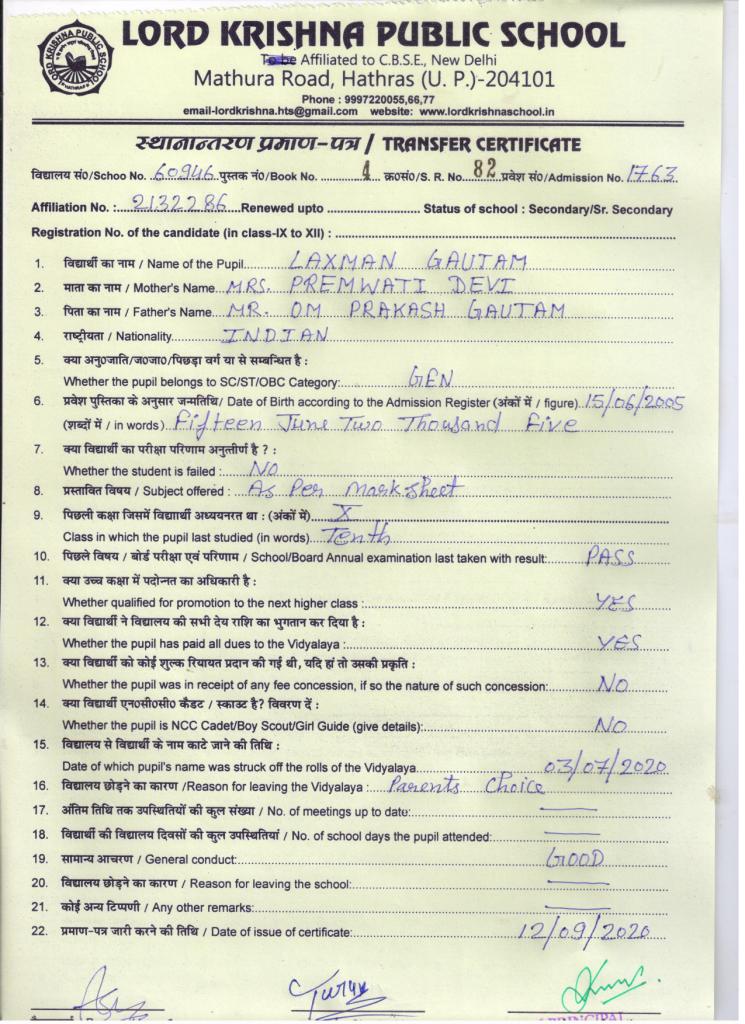 LORD KRISHNA PUBLIC SCHOOL
To be Affiliated to C.B.S.E., New Delhi
Mathura Road, Hathras (U. P.)-204101
Phone : 9997220055,66,77
email-lordkrishna.hts@gmail.com website: www.lordkrishnaschool.in
स्थानान्तरण प्रमाण-पत्र / TRANSFER CERTIFICATE
विद्यालय सं०/Schoo No. 60946 पुस्तक नं०/Book No. 4 क्र०सं०/S. R. No. 82 प्रवेश सं०/Admission No. 1763
Affiliation No. : 2132286 Renewed upto Status of school : Secondary/Sr. Secondary
Registration No. of the candidate (in class-IX to XII) :
1. विद्यार्थी का नाम / Name of the Pupil LAXMAN GAUTAM
2. माता का नाम / Mother's Name MRS. PREMWATI DEVI
3. पिता का नाम / Father's Name MR. OM PRAKASH GAUTAM
4. राष्ट्रीयता / Nationality INDIAN
5. क्या अनु०जाति/ज०जा०/पिछड़ा वर्ग या से सम्बन्धित है :
Whether the pupil belongs to SC/ST/OBC Category: GEN
6. प्रवेश पुस्तिका के अनुसार जन्मतिथि/ Date of Birth according to the Admission Register (अंकों में / figure) 15/06/2005
(शब्दों में / in words) Fifteen June Two Thousand Five
7. क्या विद्यार्थी का परीक्षा परिणाम अनुत्तीर्ण है ? :
Whether the student is failed : NO
8. प्रस्तावित विषय / Subject offered : As Per Mark Sheet
9. पिछली कक्षा जिसमें विद्यार्थी अध्ययनरत था : (अंकों में) X
Class in which the pupil last studied (in words) Tenth
10. पिछले विषय / बोर्ड परीक्षा एवं परिणाम / School/Board Annual examination last taken with result: PASS
11. क्या उच्च कक्षा में पदोन्नत का अधिकारी है :
Whether qualified for promotion to the next higher class : YES
12. क्या विद्यार्थी ने विद्यालय की सभी देय राशि का भुगतान कर दिया है :
Whether the pupil has paid all dues to the Vidyalaya : YES
13. क्या विद्यार्थी को कोई शुल्क रियायत प्रदान की गई थी, यदि हां तो उसकी प्रकृति :
Whether the pupil was in receipt of any fee concession, if so the nature of such concession: NO
14. क्या विद्यार्थी एन०सी०सी० कैडट / स्काउट है? विवरण दें :
Whether the pupil is NCC Cadet/Boy Scout/Girl Guide (give details): NO
15. विद्यालय से विद्यार्थी के नाम काटे जाने की तिथि :
Date of which pupil's name was struck off the rolls of the Vidyalaya 03/07/2020
16. विद्यालय छोड़ने का कारण /Reason for leaving the Vidyalaya : Parents Choice
17. अंतिम तिथि तक उपस्थितियों की कुल संख्या / No. of meetings up to date:
18. विद्यार्थी की विद्यालय दिवसों की कुल उपस्थितियां / No. of school days the pupil attended:
19. सामान्य आचरण / General conduct: GOOD
20. विद्यालय छोड़ने का कारण / Reason for leaving the school:
21. कोई अन्य टिप्पणी / Any other remarks:
22. प्रमाण-पत्र जारी करने की तिथि / Date of issue of certificate: 12/09/2020
PRINCIPAL